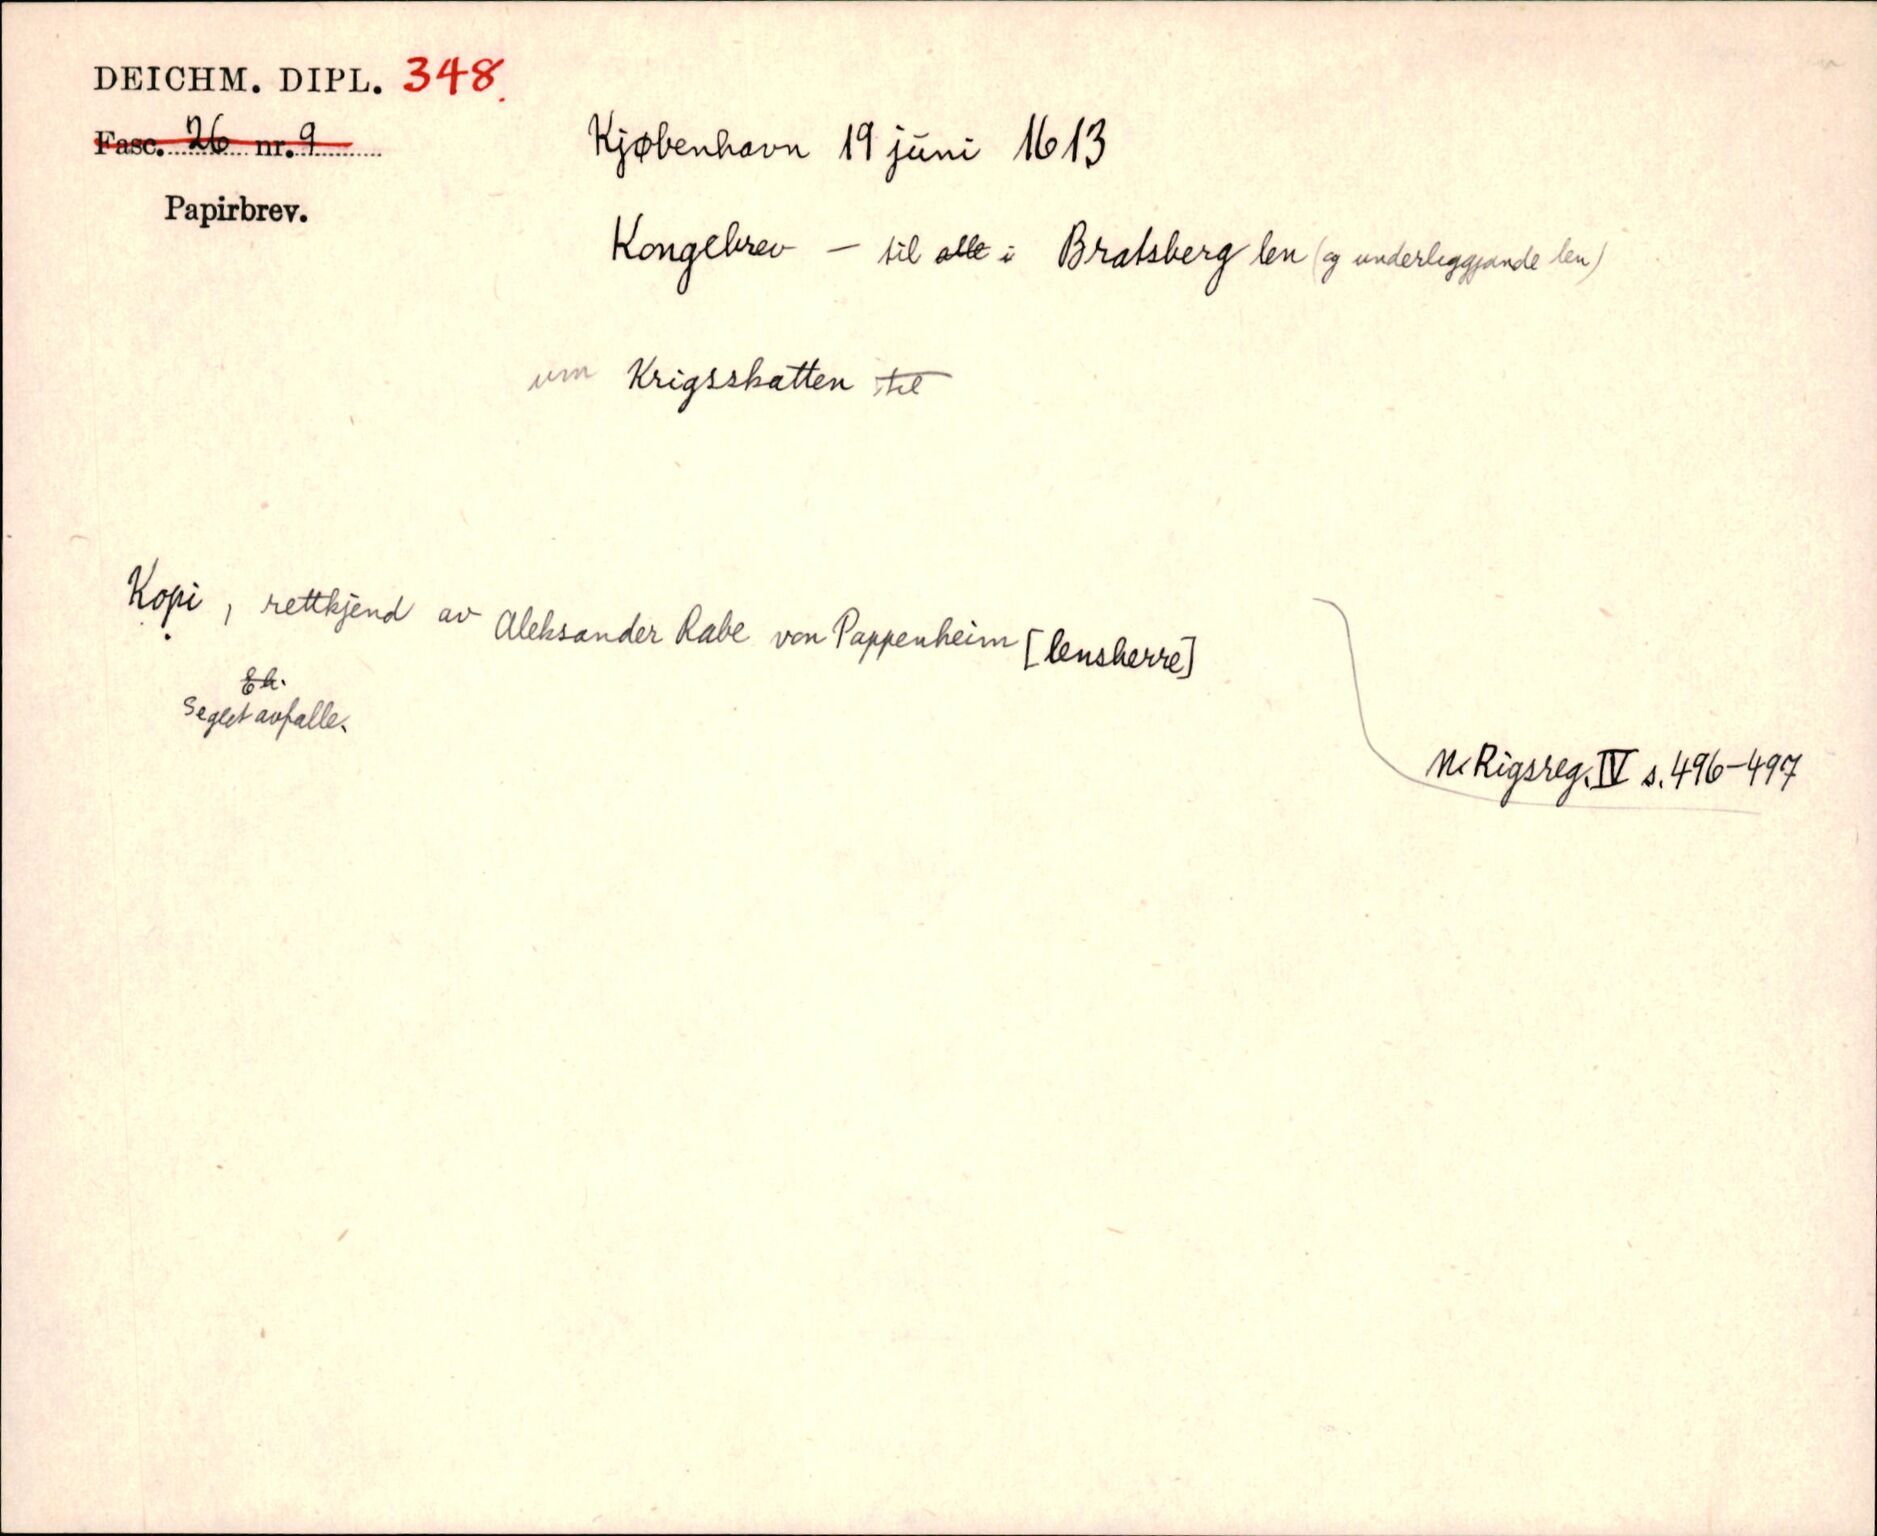 DEICHM. DIPL. 348.
Fasc. 26 nr. 9
Papirbrev.
Kjøbenhavn 19 juni 1613
Kongebrev – til alle i Bratsberg len (og underleggjande len)
um Krigsskatten til
Kopi, rettkjend av Aleksander Rabe von Pappenheim [lensherre]
Eh.
Seglet avfalle.
N. Rigsreg. IV s. 496–497